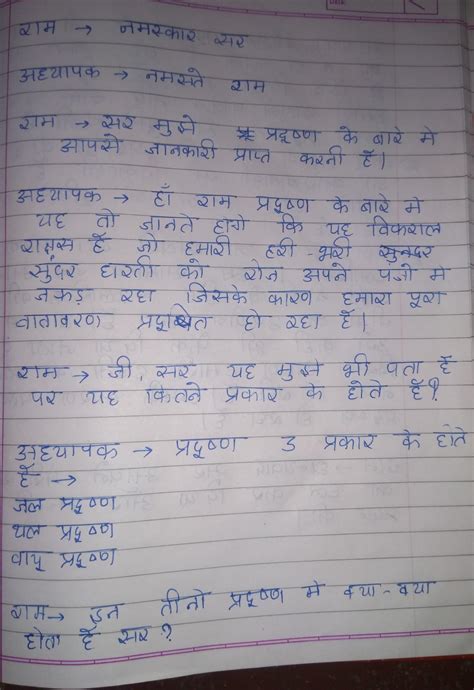 राम → नमस्कार सर
अध्यापक → नमस्ते राम
राम → सर मुझे प्रदूषण के बारे मे
आपसे जानकारी प्राप्त करनी हैं।
अध्यापक → हाँ राम प्रदूषण के बारे मे
यह तो जानते होगे कि यह विकराल
राक्षस हैं जो हमारी हरी - भरी
सुंदर धरती को रोज अपने पंजो मे
जकड़ रहा जिसके कारण हमारा पूरा
वातावरण प्रदूषित हो रहा हैं।
राम → जी, सर यह मुझे भी पता हैं
पर यह कितने प्रकार के होते हैं?
अध्यापक → प्रदूषण 3 प्रकार के होते
हैं →
जल प्रदूषण
थल प्रदूषण
वायु प्रदूषण
राम → इन तीनो प्रदूषण मे क्या - क्या
होता हैं सर?